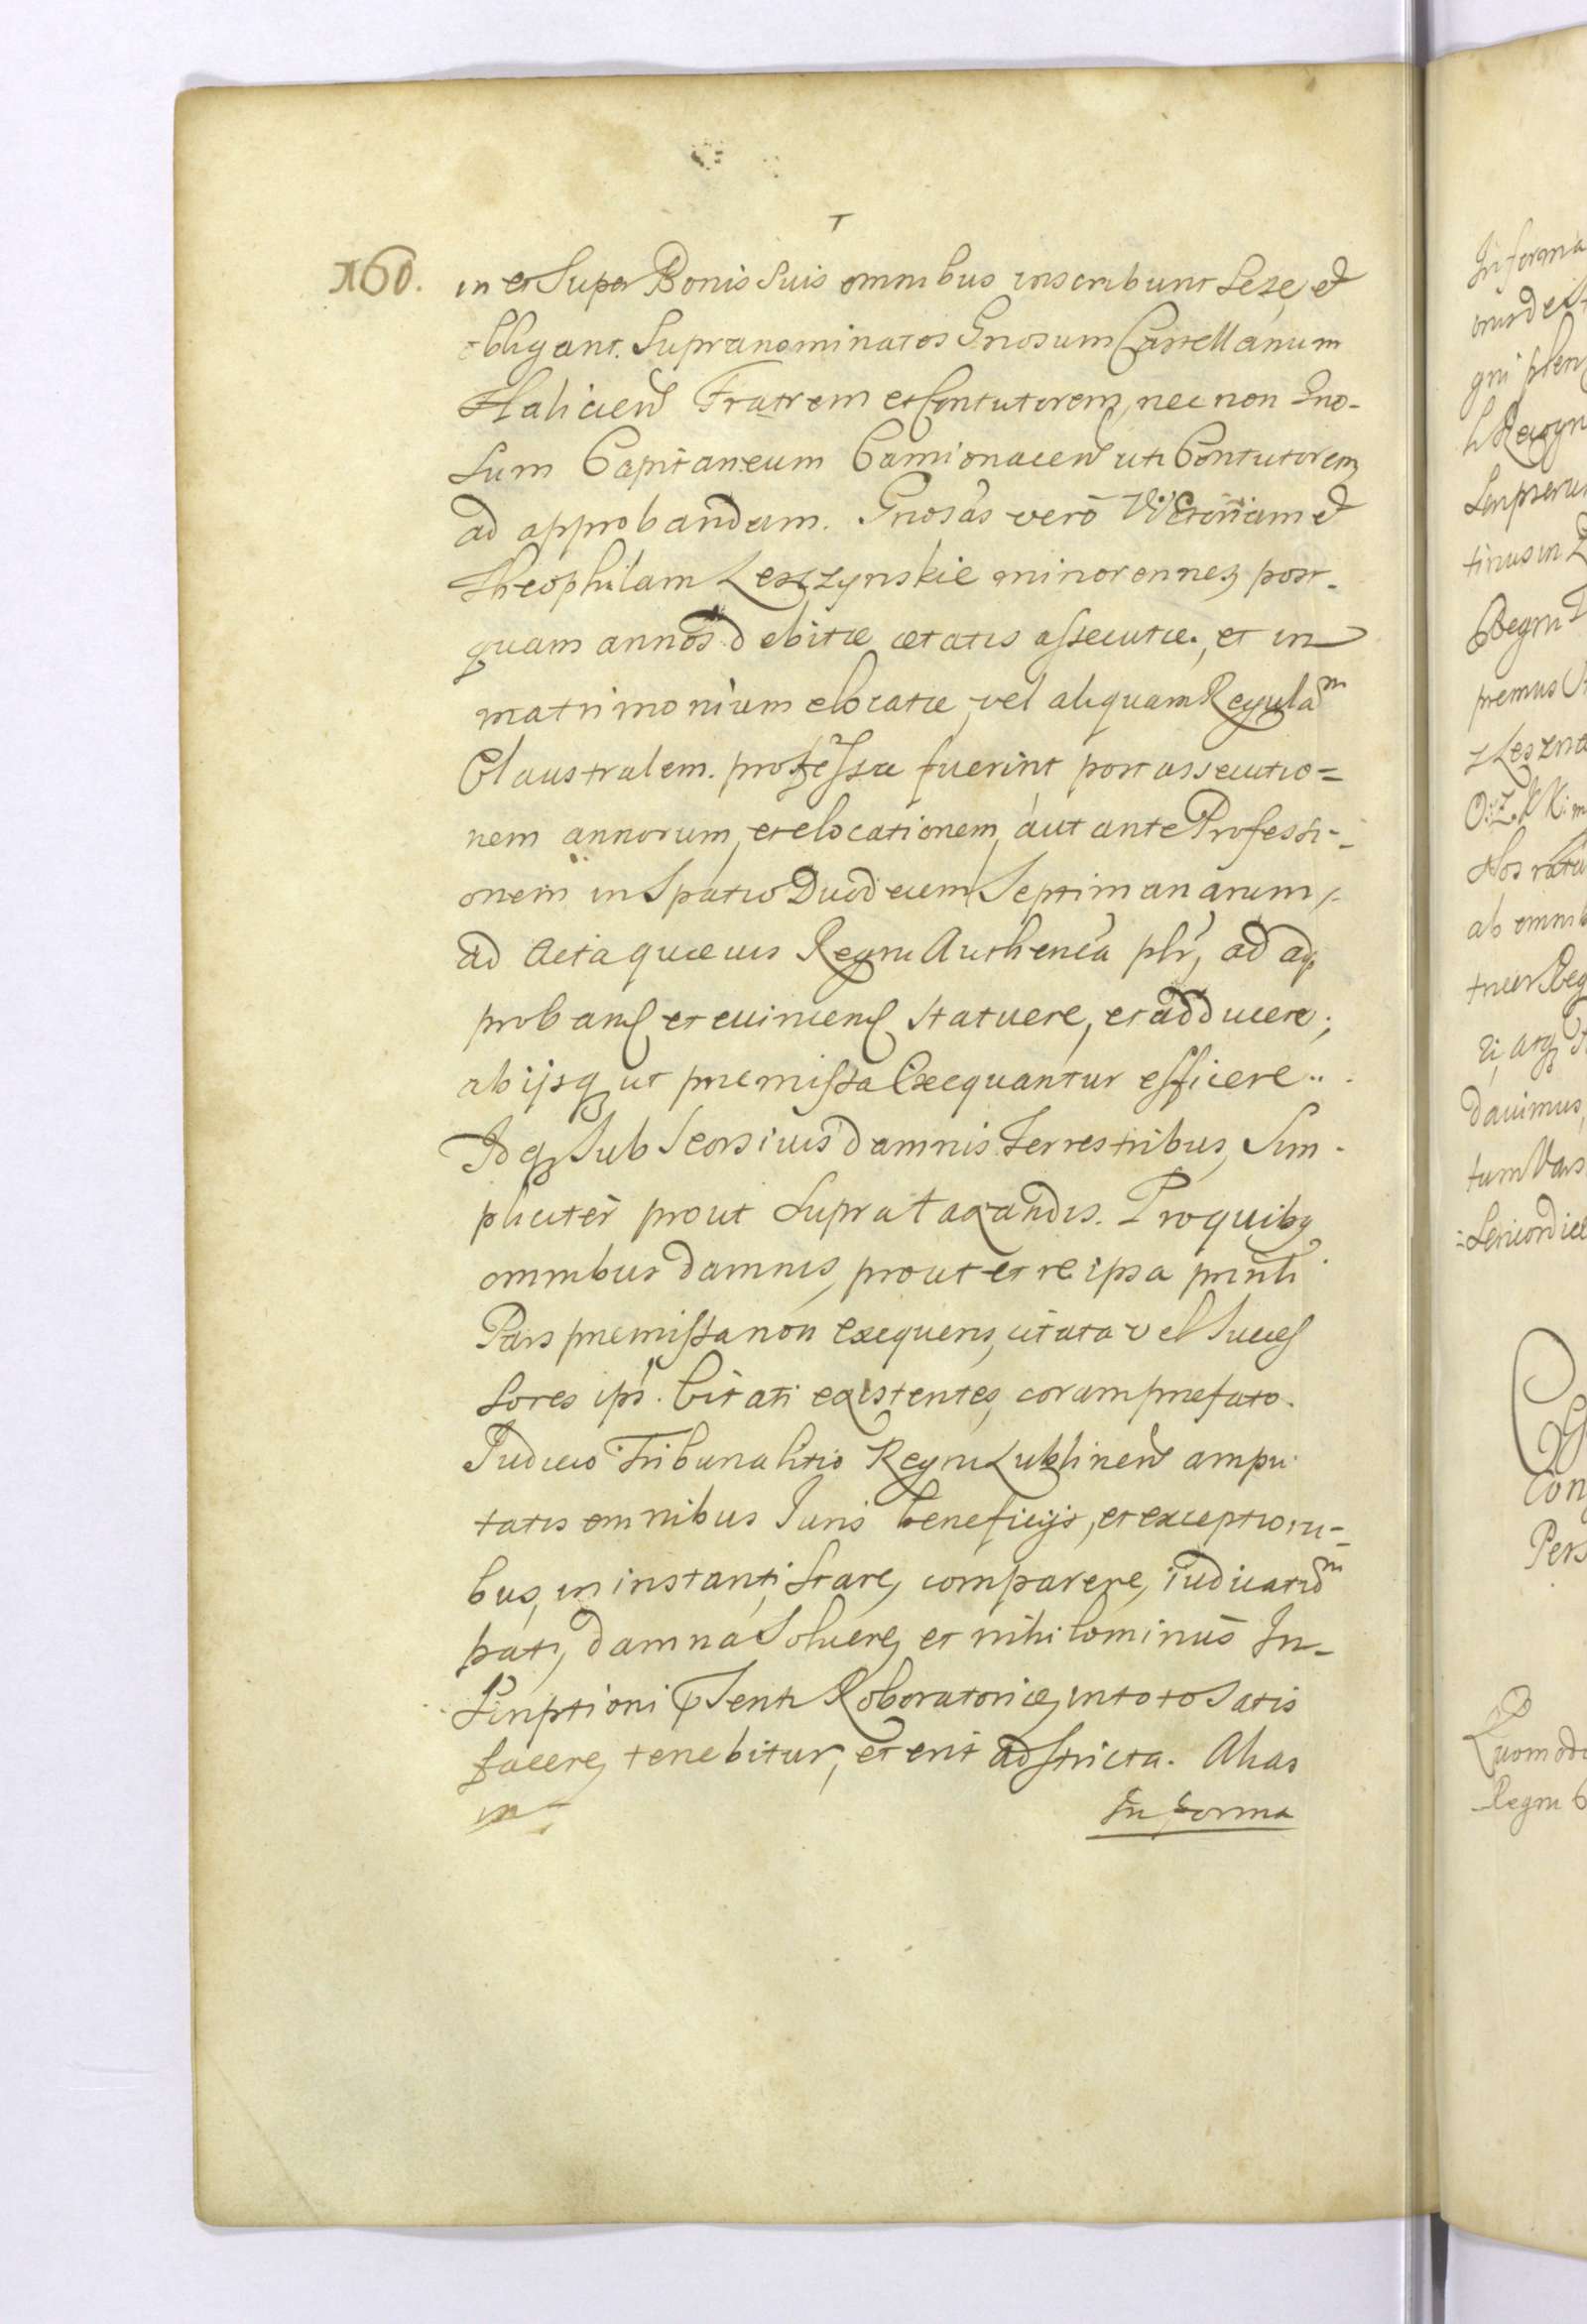 160.
in et Super Bonis Suis omnibus inscribunt Sese et
obligant. Supranominatos Gnosum Castellanum
Halicien Fratrem et Contutorem, nec non Gno-
sum Capitaneum Camionacen uti Contutorem
ad approbandum. Gnosas verò Victoriam et
Theophilam Leszzynskie minorennes, post-
quam annos debitæ ætatis assecutæ, et in
matrimonium elocatæ, vel aliquam Regulam
Claustralem professæ fuerint, post assecutio=
nem annorum, et elocationem, aut ante Professi-
onem in Spatio Duodecim Septimanarum,
ad Acta quævis Regni Authenca plr, ad ap
proband et evincend Statuere, et adducere;
ab ijsq ut præmissa Exequantur efficere..
Idq Sub Seorsivis damnis terrestribus, Sim-
pliciter prout Supra taxandis. Pro quibq
omnibus damnis, prout et re ipsa prinli
Pars præmissa non exequens, citata vel Succes
sores ipsi. Citati existentes, coram præfato.
Judicio Tribunalitio Regni Lublinen ampu-
tatis omnibus Juris beneficijs, et exceptioni-
bus, in instanti, Stare, comparere, iudicatum
pati, damna Solvere, et nihilominus In-
scriptioni pSenti Roboratoriæ, in toto Satis
facere, tenebitur, et erit adstricta. Alias
in
In forma
Informa
gni plen
tinus in
Regni
premus
Nos ratu
ab omnib
davimus,
tum Vars
Con
Pers
Quomodo
Regni